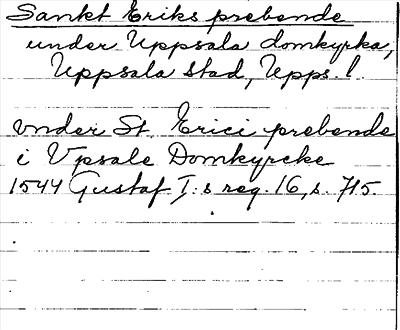 Sankt Eriks prebende
under Uppsala domkyrka,
Uppsala stad, Upps. l.
vnder St. Erici prebende
i Vpsale Domkyrcke
1544 Gustaf I:s reg. 16, s. 715.